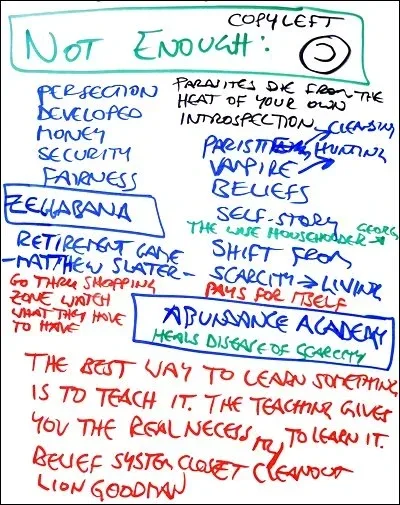 COPYLEFT
NOT ENOUGH:
PERFECTION
DEVELOPED
MONEY
SECURITY
FAIRNESS
ZEGGABANA
RETIREMENT GAME
-MATTHEW SLATER-
GO THRU SHOPPING
ZONE WATCH
WHAT THEY HAVE
TO HAVE
PARASITES DIE FROM THE
HEAT OF YOUR OWN
INTROSPECTION
CLEANSING
HUNTING
VAMPIRE
BELIEFS
SELF-STORY
THE WISE HOUSEHOLDER
SHIFT FROM
SCARCITY → LIVING
PAYS FOR ITSELF
ABUNDANCE ACADEMY
HEALS DISEASE OF SCARCITY
THE BEST WAY TO LEARN SOMETHING
IS TO TEACH IT. THE TEACHING GIVES
YOU THE REAL NECESSITY TO LEARN IT.
BELIEF SYSTEM CLOSET CLEANOUT
LION GOODMAN